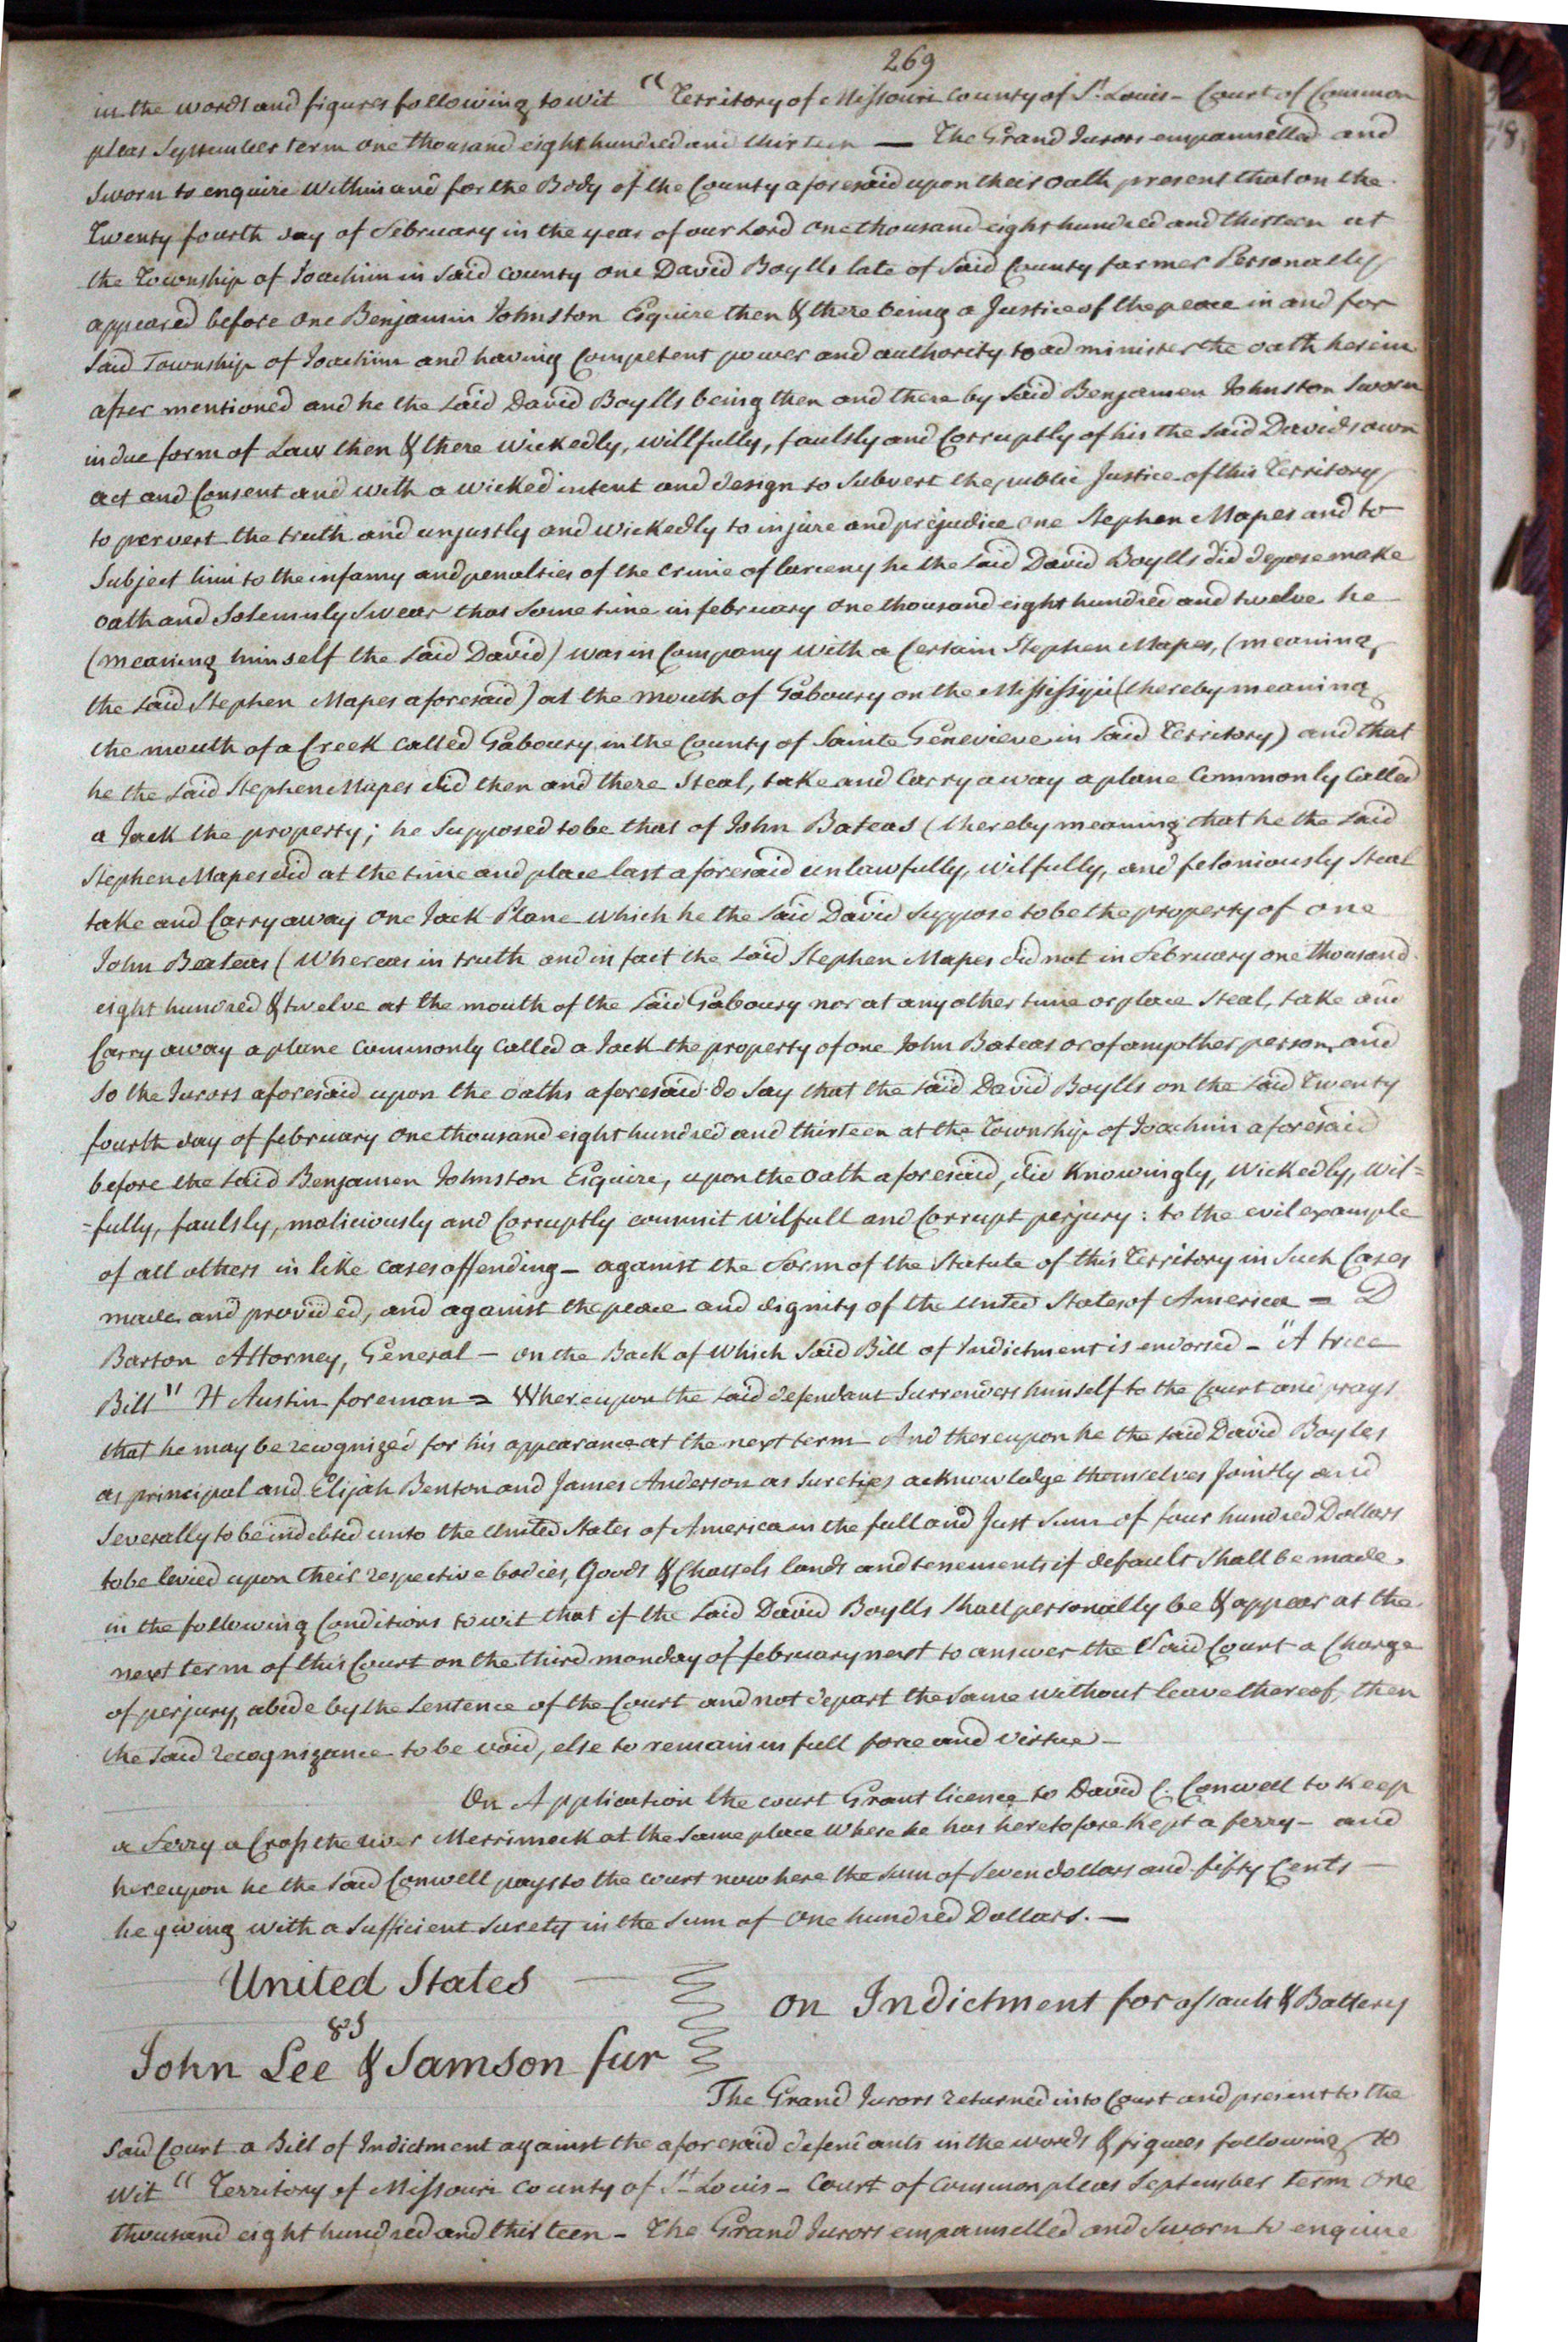 269
in the words and figures following to wit "Territory of Missouri County of St. Louis - Court of Common
pleas September term one thousand eight hundred and thirteen — The Grand Jurors empannelled and
Sworn to enquire Within and for the Body of the County aforesaid upon their oath present that on the
Twenty fourth day of February in the year of our Lord one thousand eight hundred and thirteen at
the Township of Joachim in said county one David Boylls late of said County farmer Personally
appeared before one Benjamin Johnston Esquire then & there being a Justice of the peace in and for
said Township of Joachim and having Competent power and authority to administer the oath herein
after mentioned and he the said David Boylls being then and there by said Benjamen Johnston Sworn
in due form of Law then & there Wickedly, willfully, faulsly and Corruptly of his the said Davids own
act and Consent and with a wicked intent and design to Subvert the public Justice of this Territory
to pervert the truth and unjustly and wickedly to injure and prejudice one Stephen Mapes and to
Subject him to the infamy and penalties of the crime of larceny he the said David Boylls did depose make
oath and Solemnly Swear that some time in february one thousand eight hundred and twelve he
(meaning himself the said David) was in Company with a Certain Stephen Mapes, (meaning
the said Stephen Mapes aforesaid) at the mouth of Gaboury on the Mississippi (thereby meaning
the mouth of a Creek called Gaboury in the County of Sainte Genevieve in said Territory) and that
he the said Stephen Mapes did then and there Steal, take and Carry away a plane Commonly Called
a Jack the property; he Supposed to be that of John Bateas (thereby meaning that he the said
Stephen Mapes did at the time and place last aforesaid unlawfully, wilfully, and feloniously Steal
take and Carry away one Jack Plane which he the said David Suppose to be the property of one
John Bateas (Whereas in truth and in fact the said Stephen Mapes did not in February one thousand
eight hundred & twelve at the mouth of the said Gaboury nor at any other time or place Steal, take and
Carry away a plane commonly called a Jack the property of one John Bateas or of any other person and
so the Jurors aforesaid upon the oaths aforesaid do Say that the said David Boylls on the said Twenty
fourth day of february one thousand eight hundred and thirteen at the Township of Joachim aforesaid
before the said Benjamen Johnston Esquire, upon the oath aforesaid, did Knowingly, Wickedly, Wil=
=fully, faulsly, maliciously and Corruptly commit wilfull and Corrupt perjury: to the evil example
of all others in like cases offending - against the Form of the Statute of this Territory in Such Cases
made and provided, and against the peace and dignity of the United States of America = D
Barton Attorney, General - on the Back of Which said Bill of Indictment is endorsed - "A true
Bill" H Austin foreman = Whereupon the said defendant Surrenders himself to the Court and prays
that he may be recognized for his appearance at the next term - And thereupon he the said David Boyles
as principal and Elijah Benton and James Anderson as Sureties acknowledge themselves Jointly and
Severally to be indebted unto the United States of America in the full and Just Sum of four hundred Dollars
to be levied upon their respective bodies, Goods & Chattels lands and tenements if default Shall be made,
in the following Conditions to wit that if the said David Boylls Shall personally be & appear at the
next term of this Court on the third monday of february next to answer the Said Court a Charge
of perjury, abide by the Sentence of the Court and not depart the same without leave thereof, then
the said recognizance to be void, else to remain in full force and virtue -
On Application the court Grant licence to David C. Conwell to Keep
a ferry a Cross the river Merrimack at the same place Where he has heretofore Kept a ferry - and
hereupon he the said Conwell pays to the court now here the sum of seven dollars and fifty Cents -
he giving with a Sufficient surety in the sum of One hundred Dollars. —
United States
vs
on Indictment for assault & Battery
John Lee & Samson fur
The Grand Jurors returned into Court and present to the
said Court a Bill of Indictment against the aforesaid defendants in the words & figures following to
wit " Territory of Missouri County of St Louis - Court of Common pleas September term one
thousand eight hundred and thirteen - The Grand Jurors empannelled and Sworn to enquire